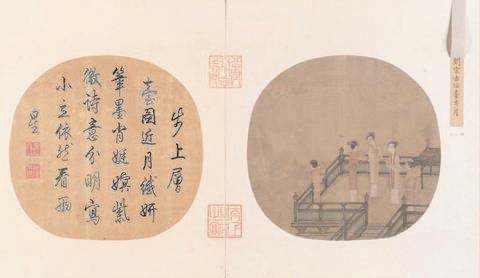 步上層
臺固近月纖妍
筆墨肖娃嬪紫
微詩意分明寫
小立依然看兩
星
劉宗古瑤臺步月